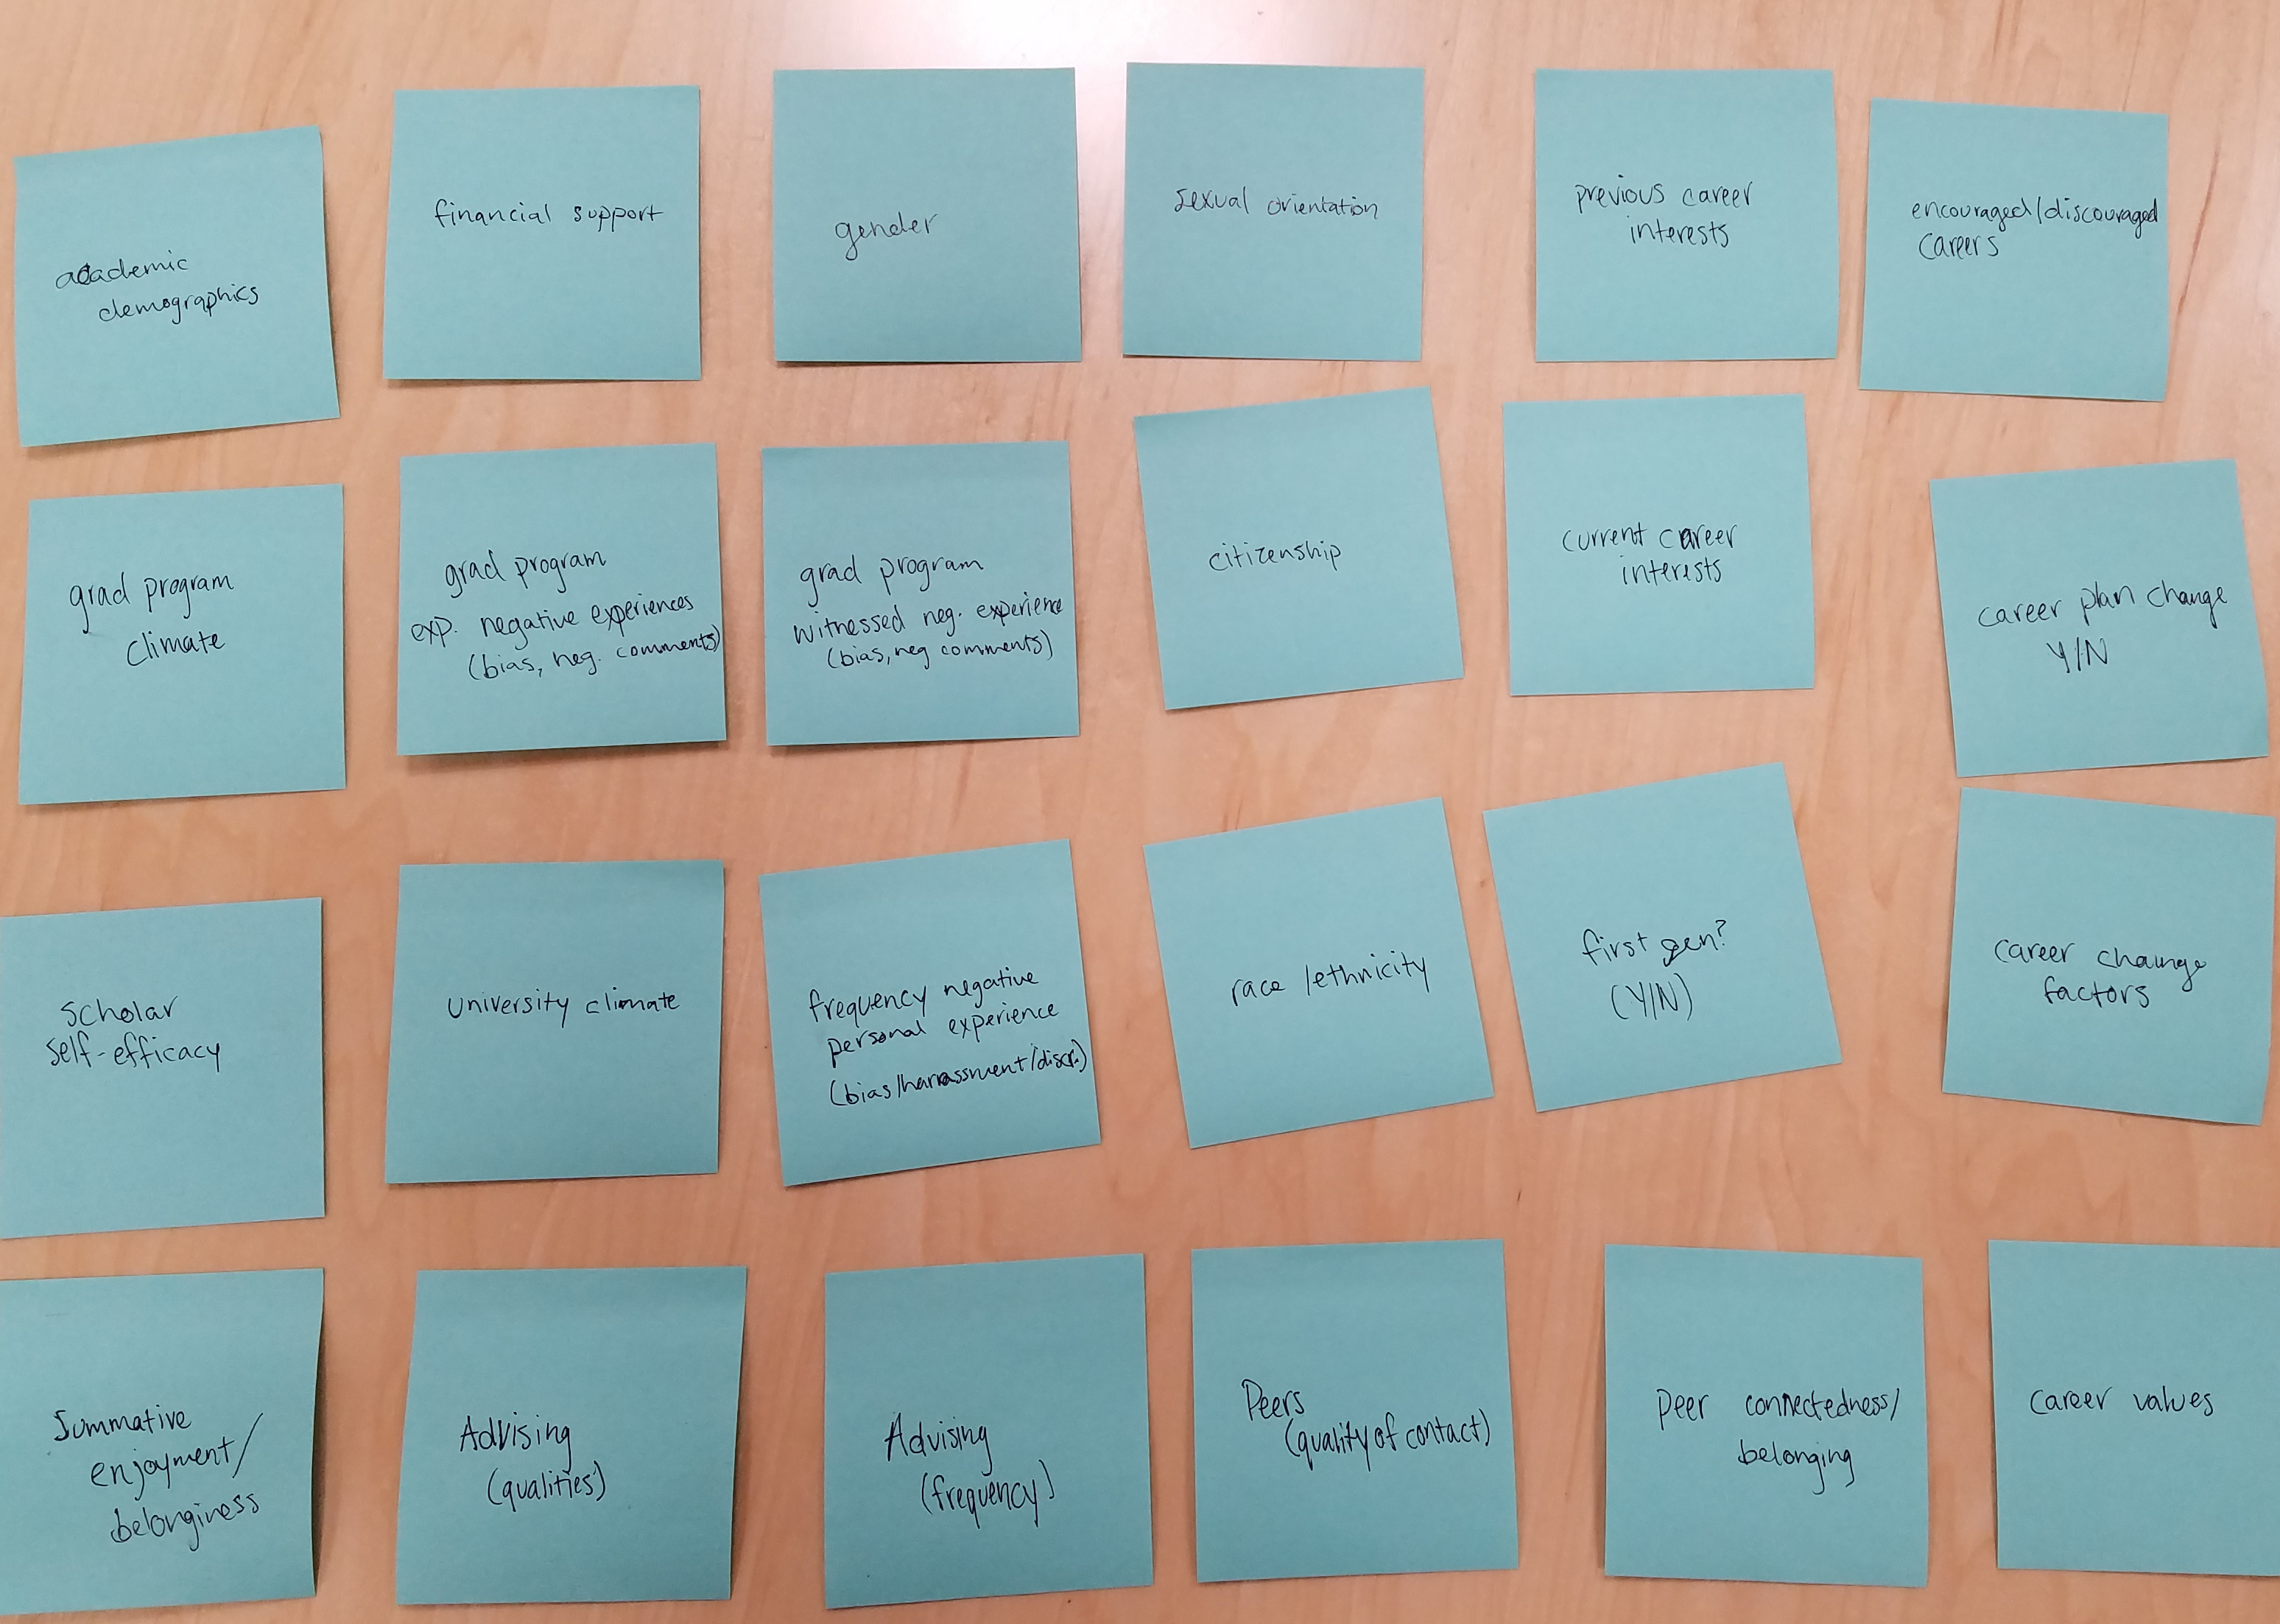 academic
demographics
financial support
gender
sexual orientation
previous career
interests
encouraged/discouraged
careers
grad program
climate
grad program
exp. negative experiences
(bias, neg. comments)
grad program
witnessed neg. experience
(bias, neg comments)
citizenship
current career
interests
career plan change
Y/N
scholar
self-efficacy
university climate
frequency negative
personal experience
(bias/harrassment/discr.)
race/ethnicity
first gen?
(Y/N)
career change
factors
Summative
enjoyment/
belonginess
Advising
(qualities)
Advising
(frequency)
Peers
(quality of contact)
peer connectedness/
belonging
career values